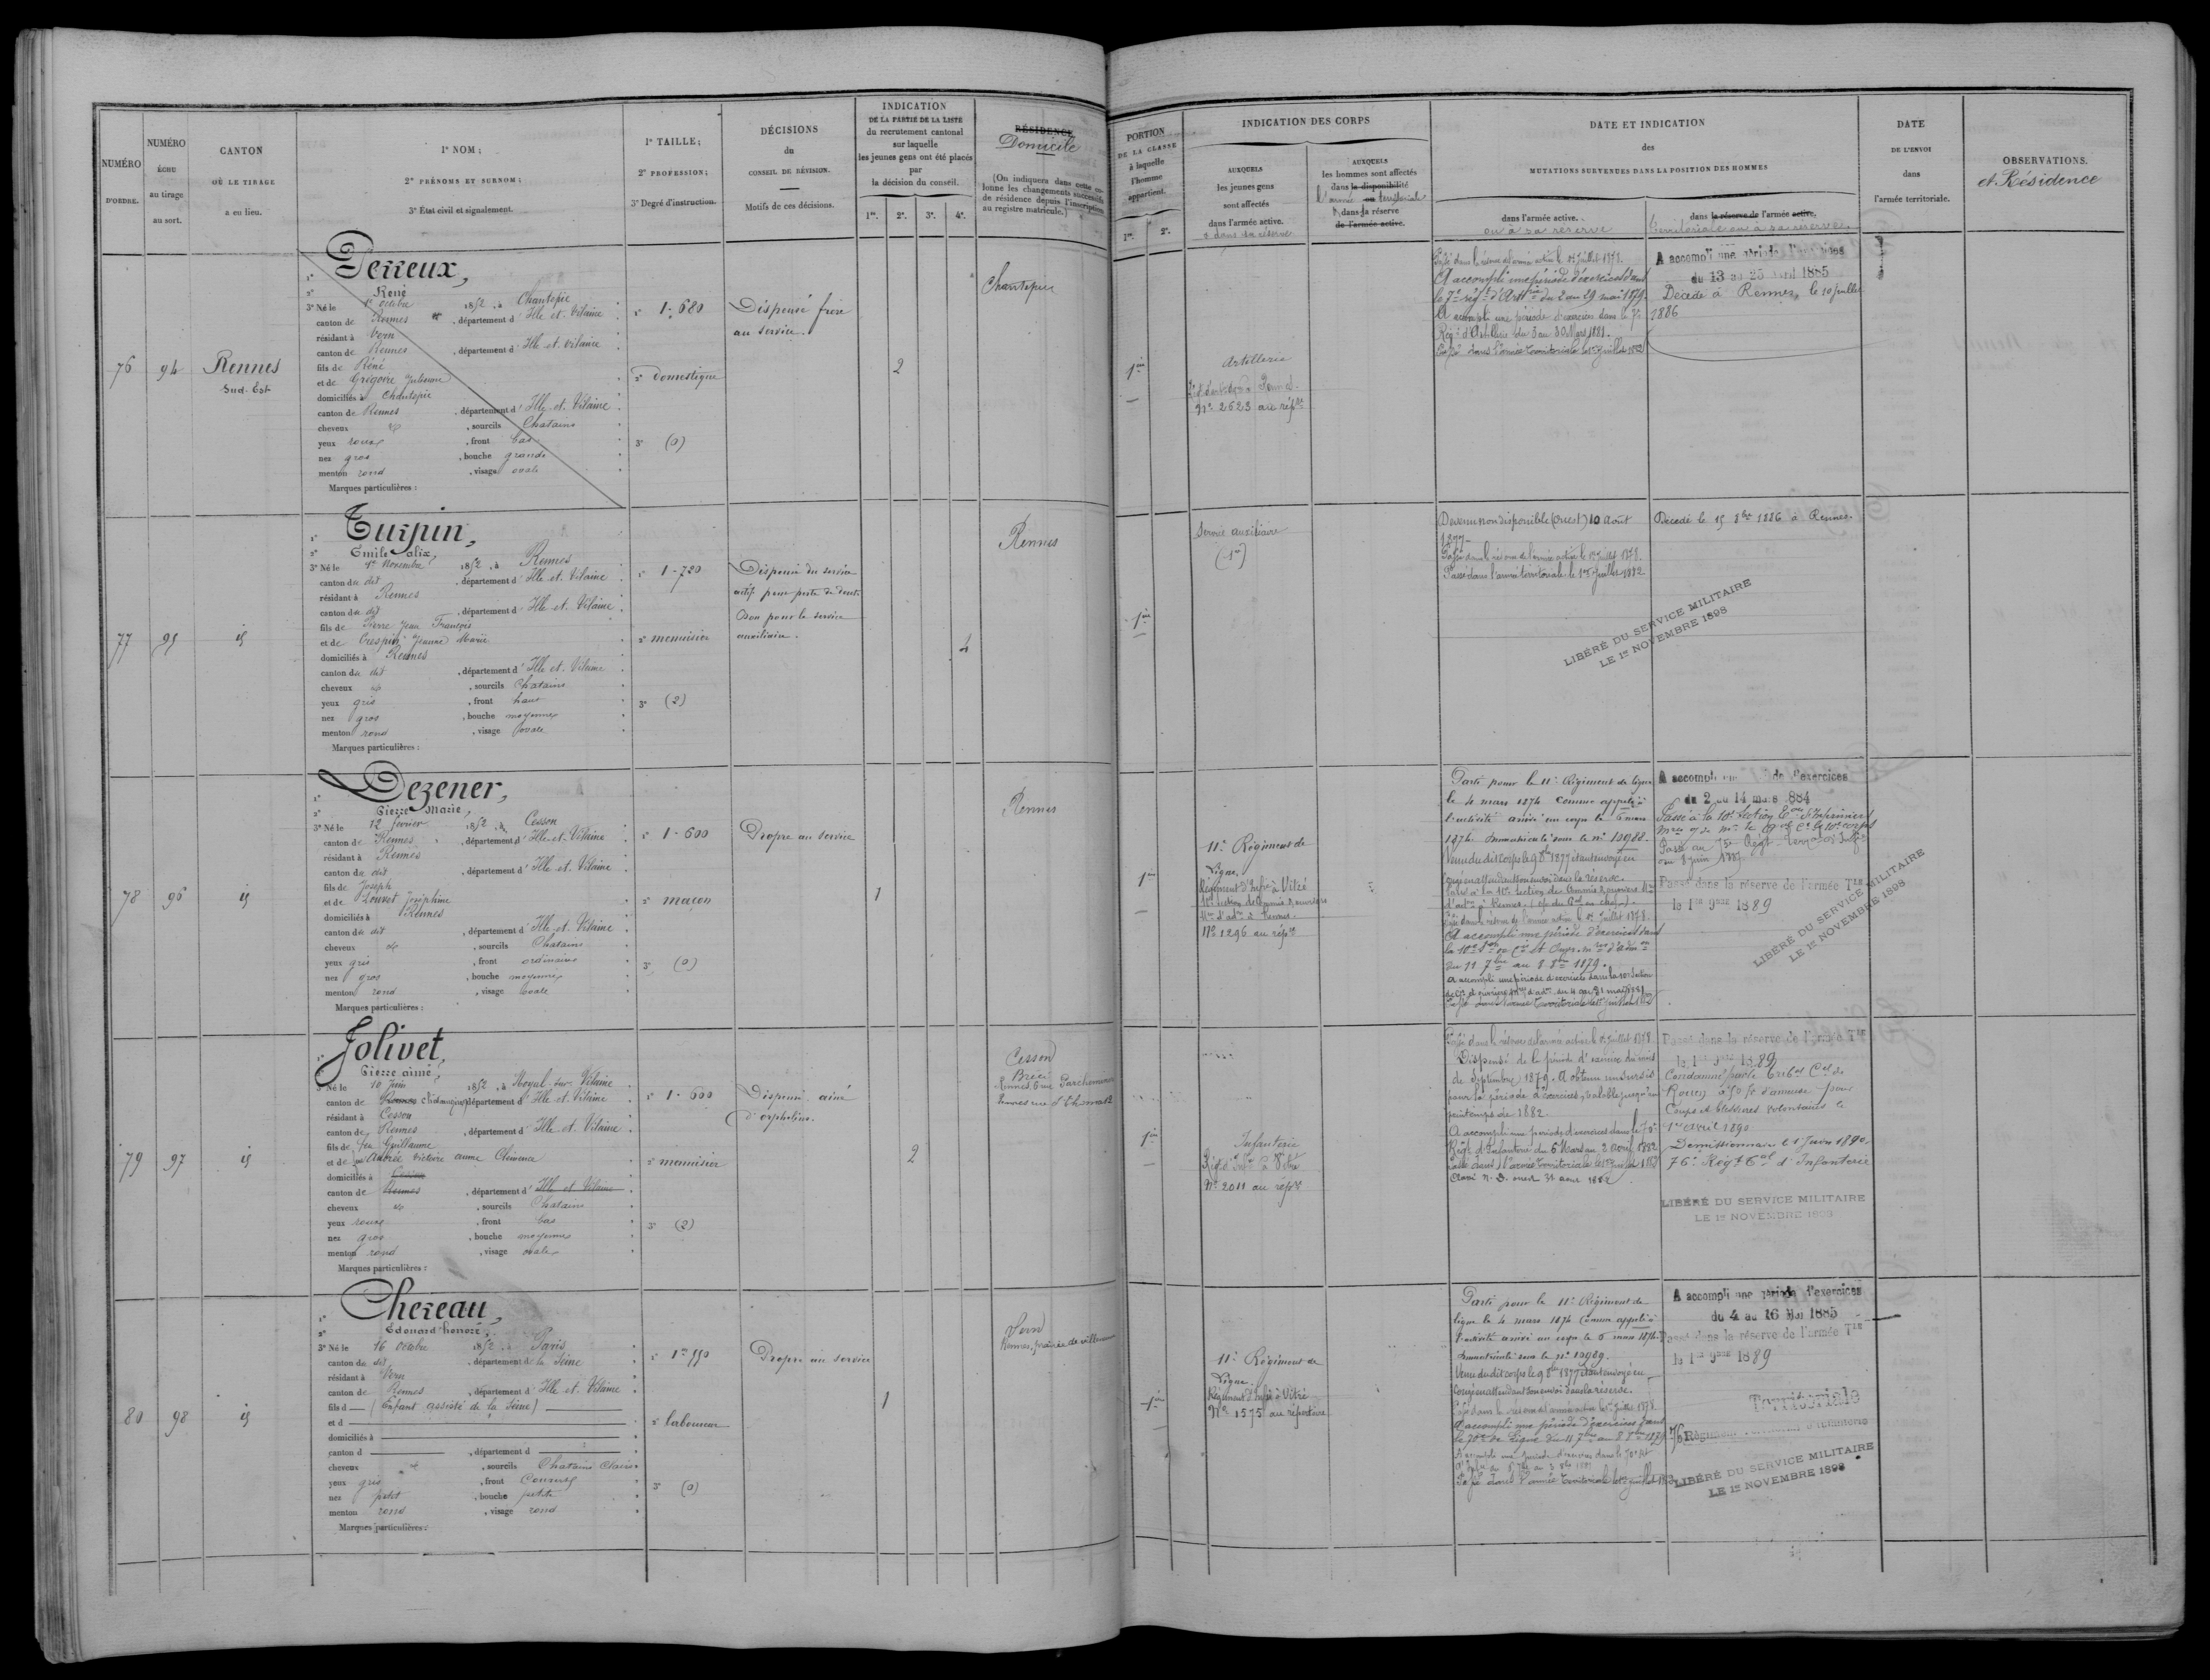 NUMÉRO
D'ORDRE.
NUMÉRO
ÉCHU
au tirage
au sort.
CANTON
OÙ LE TIRAGE
a eu lieu.
1° NOM ;
2° PRÉNOMS ET SURNOM ;
3° État civil et signalement.
1° TAILLE ;
2° PROFESSION ;
3° Degré d'instruction.
DÉCISIONS
du
CONSEIL DE RÉVISION.
Motifs de ces décisions.
INDICATION
DE LA PARTIE DE LA LISTE
du recrutement cantonal
sur laquelle
les jeunes gens ont été placés
par
la décision du conseil.
1re. 2e. 3e. 4e.
RÉSIDENCE
Domicile
(On indiquera dans cette co-
lonne les changements successifs
de résidence depuis l'inscription
au registre matricule.)
PORTION
DE LA CLASSE
à laquelle
l'homme
appartient.
1re. 2e.
INDICATION DES CORPS
AUXQUELS
les jeunes gens
sont affectés
dans l'armée active.
& dans sa réserve
AUXQUELS
les hommes sont affectés
dans la disponibilité
l'armée ou territoriale
& dans sa réserve
de l'armée active.
DATE ET INDICATION
des
MUTATIONS SURVENUES DANS LA POSITION DES HOMMES
dans l'armée active.
ou à sa réserve
dans la réserve de l'armée active.
territoriale ou à sa réserve.
DATE
DE L'ENVOI
dans
l'armée territoriale.
OBSERVATIONS.
et Résidence
76
94
Rennes
Sud-Est
1° Derreux,
2° René
3° Né le 1er octobre 1852, à Chantepie
canton de Rennes, département d'Ille et Vilaine
résidant à Vern
canton de Rennes, département d'Ille et Vilaine
fils de René
et de Grégoire Julienne
domiciliés à Chantepie
canton de Rennes, département d'Ille et Vilaine
cheveux et, sourcils Chatains
yeux roux, front bas
nez gros, bouche grande
menton rond, visage ovale
Marques particulières :
1° 1.680
2° domestique
3° (0)
Dispensé frère
au service.
2
Chantepie
1ère
Artillerie
No 2523 au répre
Passé dans la réserve de l'armée active le 1er Juillet 1878.
A accompli une période d'exercices dans
le 7e régt d'Artrie du 2 au 29 mai 1879.
A accompli une période d'exercices dans le 7e
Régt d'Artillerie du 3 au 30 Mars 1881.
Passé dans l'armée territoriale le 1er Juillet 1882
A accompli une période d'exercices
du 13 au 25 avril 1885
Décédé à Rennes, le 10 juillet
1886
77
95
id
1° Turpin,
2° Emile alix,
3° Né le 1er novembre 1852, à Rennes
canton du dit, département d'Ille et Vilaine
résidant à Rennes
canton du dit, département d'Ille et Vilaine
fils de Pierre Jean François
et de Crespin Jeanne Marie
domiciliés à Rennes
canton du dit, département d'Ille et Vilaine
cheveux et, sourcils Chatains
yeux gris, front haut
nez gros, bouche moyenne
menton rond, visage ovale
Marques particulières :
1° 1.720
2° menuisier
3° (2)
Dispensé du service
actif pour perte de dents
Bon pour le service
auxiliaire.
4
Rennes
1ère
Service auxiliaire
Devenu non disponible (ouest) 10 août
1877
Passé dans la réserve de l'armée active le 1er Juillet 1878.
Passé dans l'armée territoriale le 1er Juillet 1882
Décédé le 15 8bre 1886 à Rennes.
LIBÉRÉ DU SERVICE MILITAIRE
LE 1er NOVEMBRE 1898
78
96
id
1° Dezener,
2° Pierre Marie,
3° Né le 12 février 1852, à Cesson
canton de Rennes, département d'Ille et Vilaine
résidant à Rennes
canton du dit, département d'Ille et Vilaine
fils de Joseph
et de Louvet Joséphine
domiciliés à Rennes
canton du dit, département d'Ille et Vilaine
cheveux et, sourcils Chatains
yeux gris, front ordinaire
nez gros, bouche moyenne
menton rond, visage ovale
Marques particulières :
1° 1.600
2° maçon
3° (0)
Propre au service
1
Rennes
1ère
11e Régiment de
Ligne.
Régiment d'Infie à Vitré
10e Section de Commis & ouvriers
Mres d'adon à Rennes.
No 1296 au répre
Parti pour le 11e Régiment de ligne
le 4 mars 1874 comme appelé à
l'activité arrivé au corps le 6 mars
1874. Immatriculé sous le no 10988.
Venu du dit corps le 9 8bre 1877 étant envoyé en
congé en attendant son envoi dans la réserve.
Passé dans la réserve de l'armée active le 1er Juillet 1878.
A accompli une période d'exercices dans
du 11 7bre au 8 8bre 1879.
A accompli une période d'exercices dans la 10e Section
de Cis et ouvriers mres d'adon du 4 au 31 mai 1881
Passé dans l'armée territoriale le 1er juillet 1882
A accompli de d'exercices
du 2 au 14 mars 884
Passé au 75e Régt Terral d'Infie
Passé dans la réserve de l'armée Tle
le 1er 9bre 1889
LIBÉRÉ DU SERVICE MILITAIRE
LE 1er NOVEMBRE 1898
79
97
id
1° Jolivet,
2° Pierre aimé,
3° Né le 10 Juin 1852, à Noyal-sur-Vilaine
canton de Rennes Chateaugiron, département d'Ille et Vilaine
résidant à Cesson
canton de Rennes, département d'Ille et Vilaine
fils de feu Guillaume
et de feue Audrée Victoire anne Clémence
domiciliés à Cesson
canton de Rennes, département d'Ille et Vilaine
cheveux et, sourcils Chatains
yeux roux, front bas
nez gros, bouche moyenne
menton rond, visage ovale
Marques particulières :
1° 1.600
2° menuisier
3° (2)
Dispensé ainé
d'orphelins.
2
Cesson
Brécé
Rennes, 6 rue Parcheminerie
1ère
Infanterie
Régt d'Infie à Vitré
No 2011 au répre
Passé dans la réserve de l'armée active le 1er Juillet 1878.
Dispensé de la période d'exercice du mois
de Septembre 1879. A obtenu un sursis
pour la période d'exercices, valable jusqu'au
printemps de 1882.
A accompli une période d'exercices dans le 70e
Régt d'Infanterie du 6 Mars au 2 avril 1882
Passé dans l'armée territoriale le 1er juillet 1882
Classé N. D. ouest 31 aout 1882
Passé dans la réserve de l'armée Tle
le 1er 9bre 1889
Condamné par le Tribal Cel de
Rouen à 50 f. d'amende pour
Coups et blessures volontaires le
1er avril 1890
Démissionnaire le 1 Juin 1890.
76e Régt Tal d'Infanterie
LIBÉRÉ DU SERVICE MILITAIRE
LE 1er NOVEMBRE 1898
80
98
id
1° Chereau,
2° Edouard honoré,
3° Né le 16 octobre 1852, à Paris
canton du dit, département de la Seine
résidant à Vern
canton de Rennes, département d'Ille et Vilaine
fils d (Enfant assisté de la Seine)
et d
domiciliés à
canton d, département d
cheveux et, sourcils Chatains clairs
yeux gris, front couvert
nez petit, bouche petite
menton rond, visage rond
Marques particulières :
1° 1m 550
2° laboureur
3° (0)
Propre au service
1
Vern
1ère
11e Régiment de
Ligne.
Régiment d'Infie à Vitré
No 1575 au répertoire
Parti pour le 11e Régiment de
ligne le 4 mars 1874 comme appelé à
l'activité arrivé au corps le 6 mars 1874.
Immatriculé sous le no 10989.
Venu du dit corps le 9 8bre 1877 étant envoyé en
congé en attendant son envoi dans la réserve.
Passé dans la réserve de l'armée active le 1er Juillet 1878.
A accompli une période d'exercices dans
le 70e de Ligne du 11 7bre au 8 8bre 1879
Passé dans l'armée territoriale le 1er juillet 1882
A accompli une période d'exercices
du 4 au 16 Mai 1885
Passé dans la réserve de l'armée Tle
le 1er 9bre 1889
Territoriale
76 Régiment d'Infanterie
LIBÉRÉ DU SERVICE MILITAIRE
LE 1er NOVEMBRE 1898